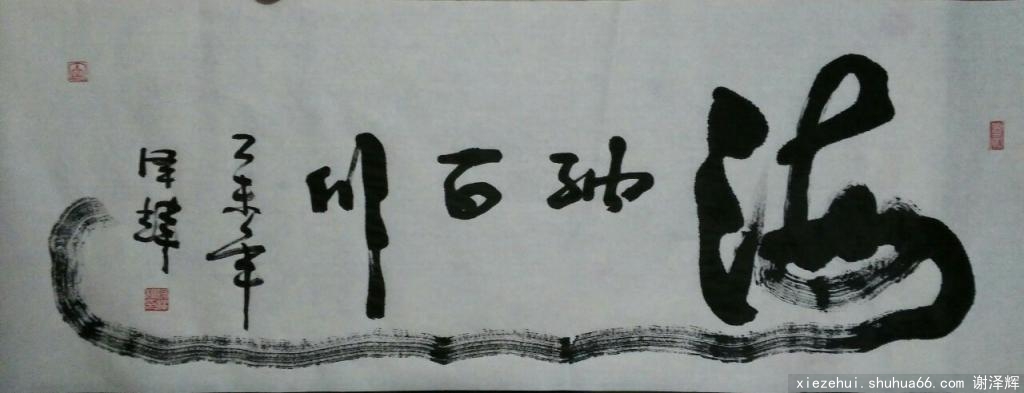 海纳百川
乙未年
泽辉
xiezehui.shuhua66.com 谢泽辉